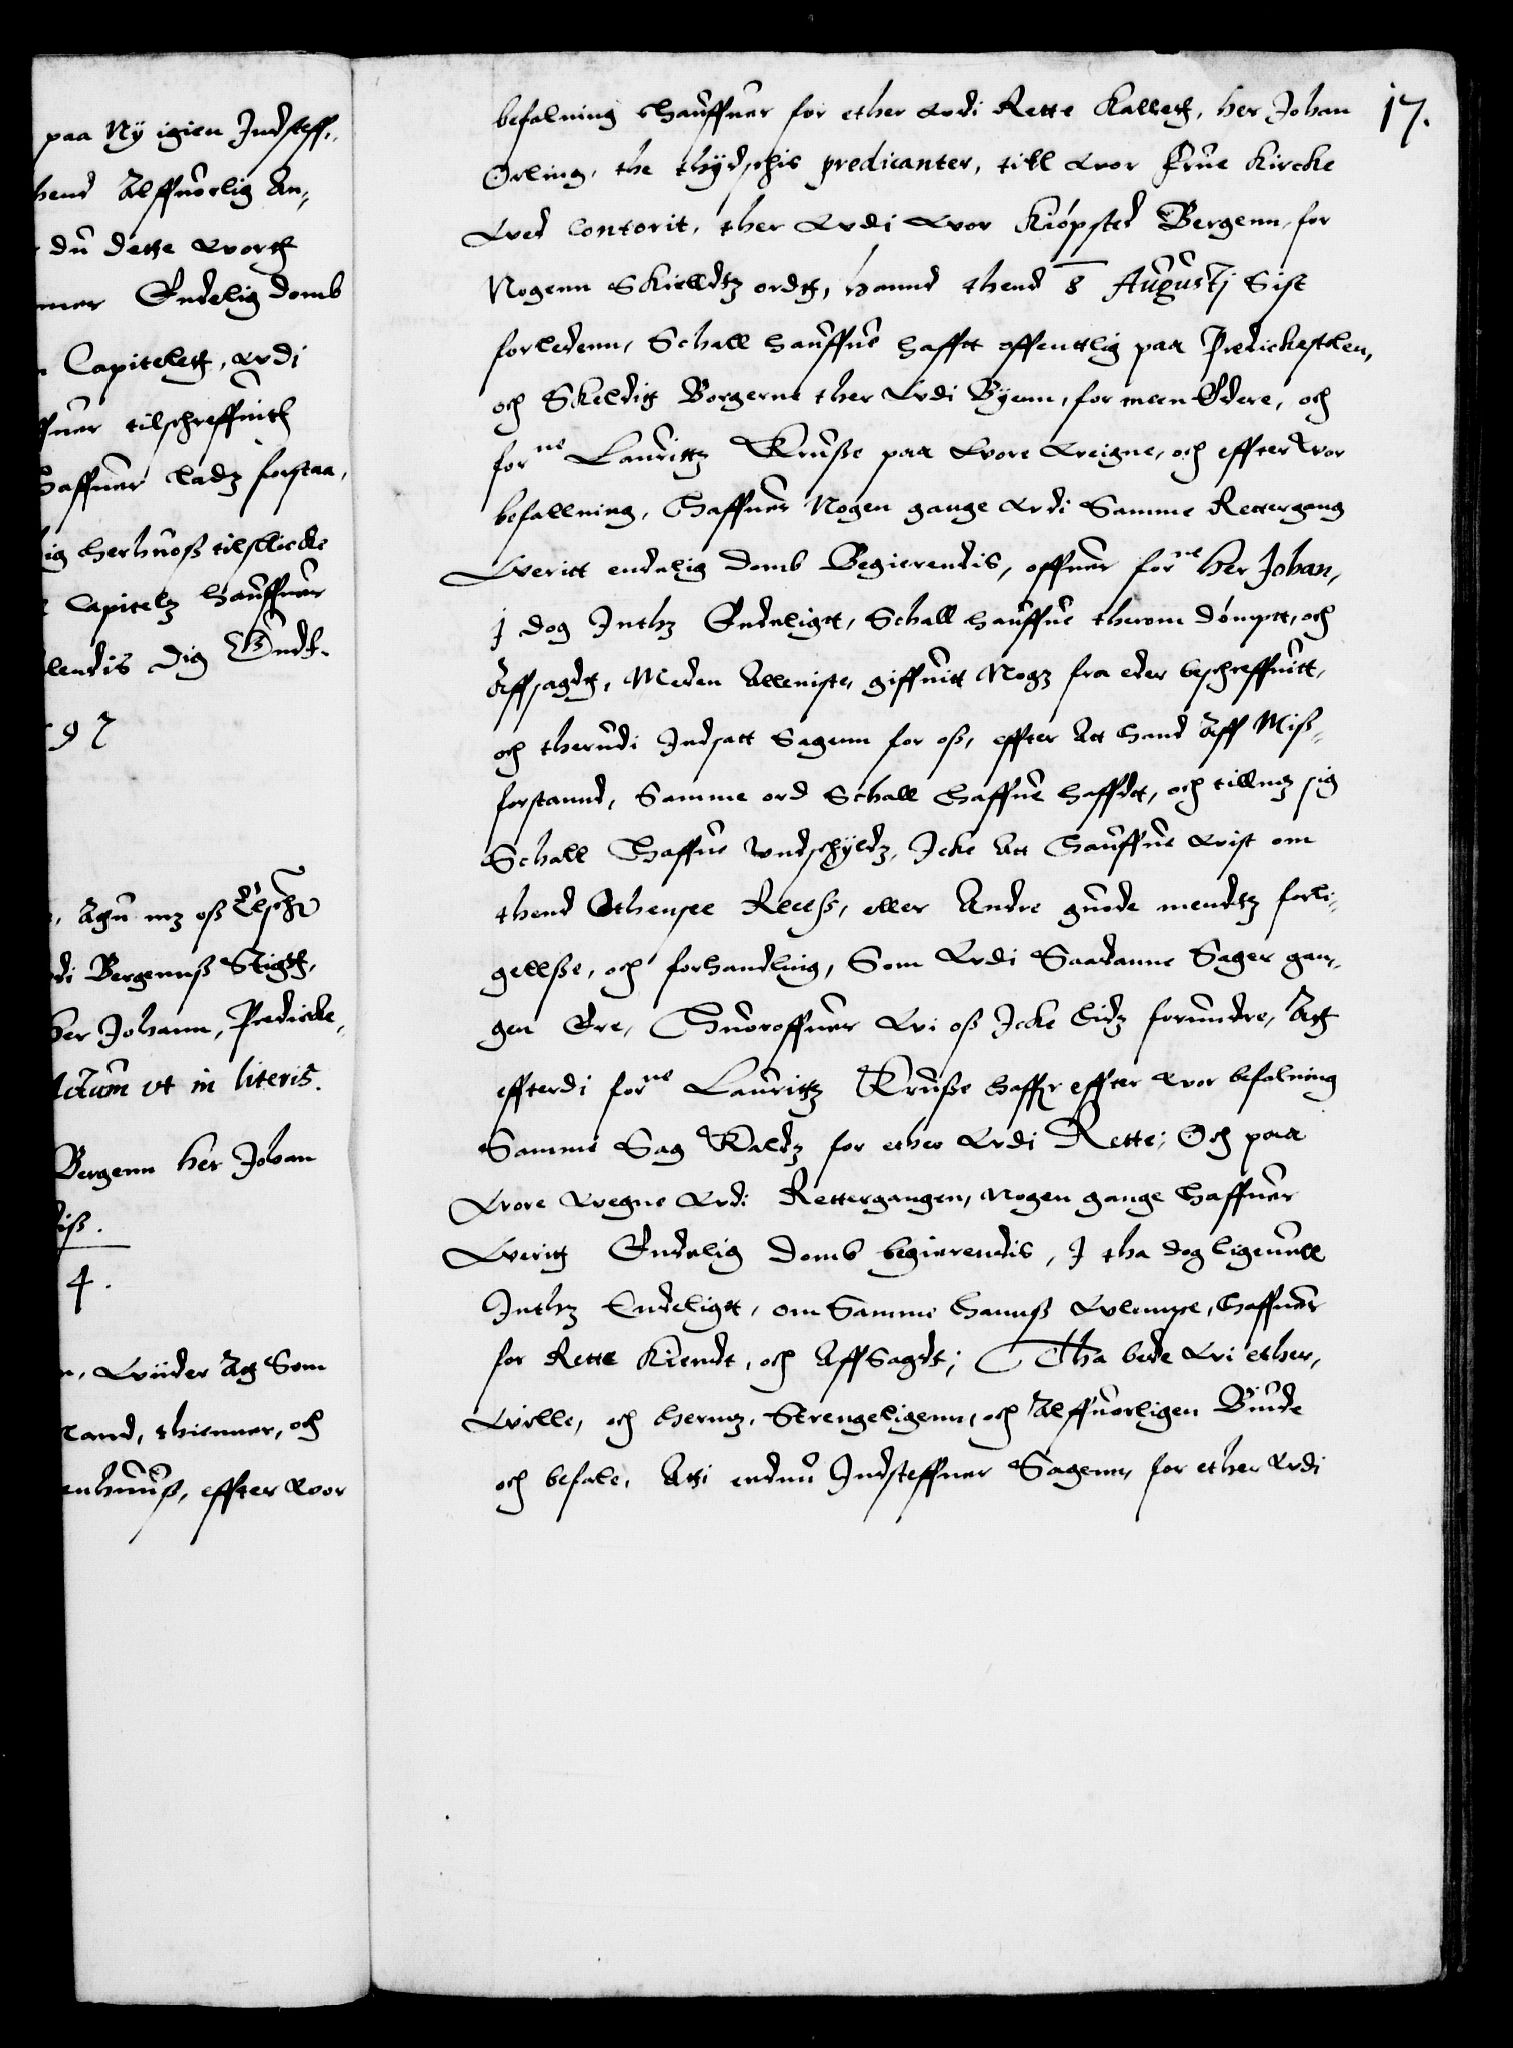 paa Ny igien Indsteff,,
hend Alffuorlig An,
du dette worth
mer Endelig domb
Capitelett, wdi
ffuer tilschreffuith
haffuer ladz forstaa,
ig herhuoß tilskicke
Capitelz hauffuer
lendis dig Endt.
97
, Agu mz oß Elsche
di Bergennß Stigtt,
her Johann, Predicke,
Actum vt in literis.
Bergenn her Johan
iß.
4.
, wiider Ag Som
land, thienner, och
enhuuß, effter wor
17.
befalning hauffuer for ether wdi Rette Kalleth, her Johan
Örling, the thydschis predicanter, till wor Frue Kircke
wed Contorit, ther wdi wor Kiöpsted Bergenn, for
Nogenn Skielldtz ordtt, hannd thend 8 Augustj Sist
forledenn, Schall hauffue hafftt offenttlig paa Predickestolen,
och Skeldtt Borgerne ther wdi Byenn, for meen Edere, och
forne Laurittz Kruße paa wore weigne, och effter wor
befallning, Haffuer Nogen gange wdi Samme Rettergang
weritt endelig domb Begierendis, offuer forne her Johan,
J dog Inthz Endeligt, Schall hauffue therom dömptt, och
Affsagdtt, Meden Alleniste, giffuitt Nogz fra eder beschreffuitt,
och therudi Indsatt Sagenn for oß, effter Att hand Aff Miß,
forstannd, Samme ord Schall haffue hafftt, och tillmz sig
Schall Haffue wndschyldz, Icke Att Hauffue wist om
thend Othensee Receß, eller Andre guode mendtz forli,
gellße, och forhandling, Som wdi Saadanne Sager gan,
gen Ere, Huoroffuer wi oß Icke Lidz forundre, Att
effterdi forne Laurittz Kruße haffr effter wor befalning
Samme Sag Kaldz for ether wdi Rette; Och paa
wore wegne wdi Rettergangen, nogen gange haffuer
weritt Endelig domb begierendis, J tha dog ligeuell
Inthz Endeligt, om Samme hannß wlempe, haffuer
for Rette Kiendt, och AffSagdt; Tha bede wi ether,
wille, och hermz, Strengeligenn, och Alffuorligen Biude
och befale, Atti endnu Indsteffner Sagenn, for ether wdi